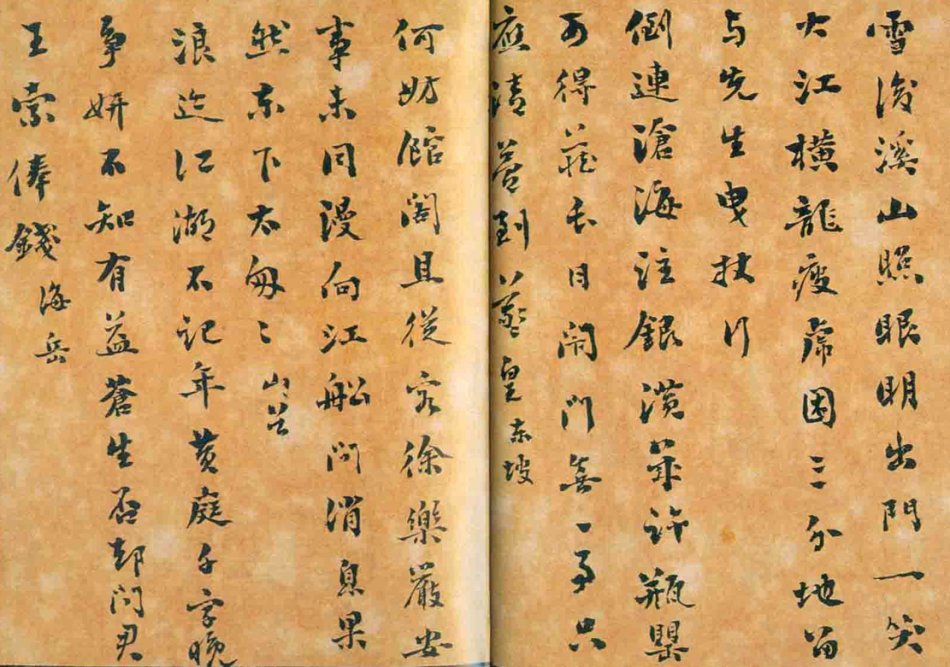 雪後溪山照眼明出門一笑
大江橫龍疲虎困三分地留
与先生曳杖行
倒連滄海注銀潢等許瓶罌
可得藏長日閉門無一事只
應清夢到羲皇 東坡
何妨館閣且從容徐樂嚴安
事未同漫向江船問消息果
然東下太匆〻 山谷
浪迹江湖不記年黃庭千字晚
爭妍不知有益蒼生否却問君
王索俸錢 海岳